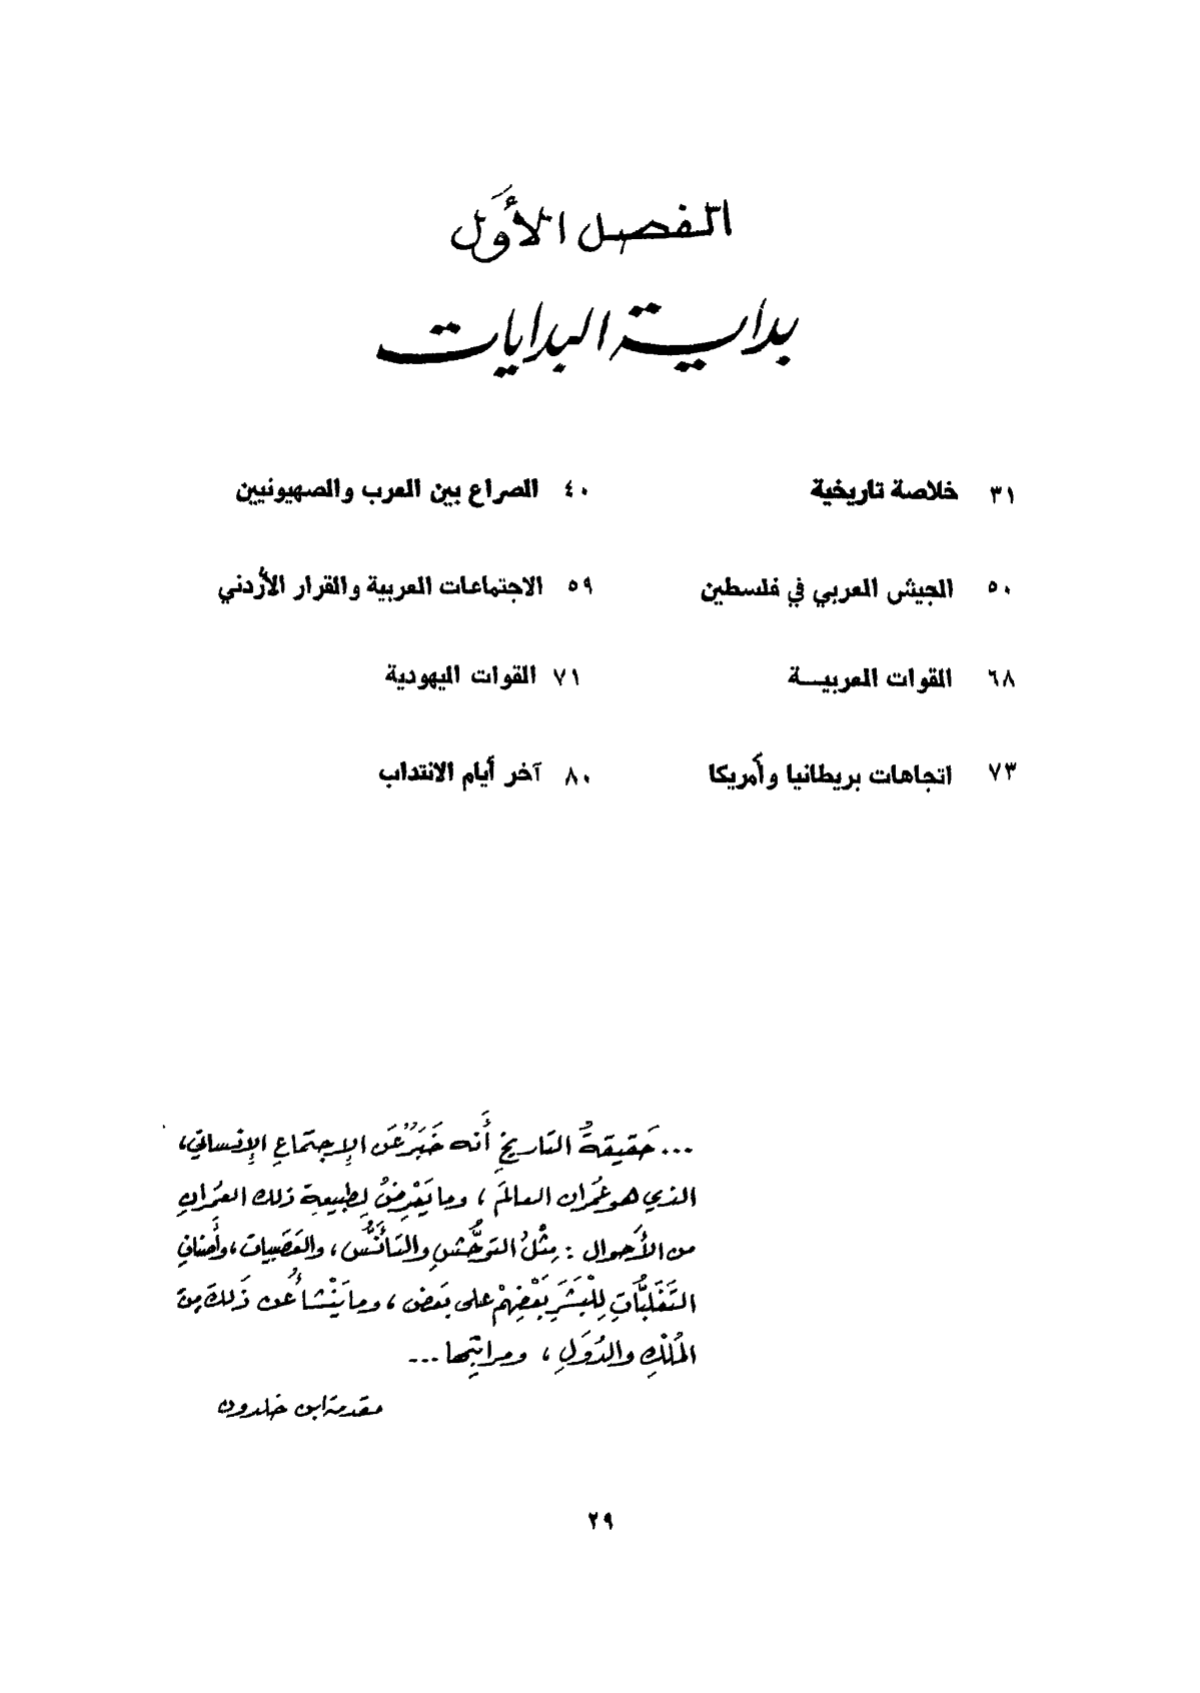 الفصل الأَول
بداية البدايات
٣١ خلاصة تاريخية ٤٠ الصراع بين العرب والصهيونيين
٥٠ الجيش العربي في فلسطين ٥٩ الاجتماعات العربية والقرار الأردني
٦٨ القوات العربيـــة ٧١ القوات اليهودية
٧٣ اتجاهات بريطانيا وأمريكا ٨٠ آخر أيام الانتداب
... حَقيقةُ التاريخِ أَنه خَبَرٌ عَن الإجتماعِ الإنساني،
الذي هو عُمَران العالمَ، وما يَعْرِضُ لِطبيعةِ ذلك العُمرانِ
من الأَحوال : مِثْلُ التوَحُّشِ والتأَنُّس، والعَصَبيات، وأَصنافِ
التَغَلبُّاتِ لِلْبَشَرَِ بَعْضِهِمْ على بَعض، وما يَنْشأُ عن ذَلك مِنَ
المُلْكِ والدُوَلِ، ومراتبِها ...
مقدمة ابن خلدون
٢٩